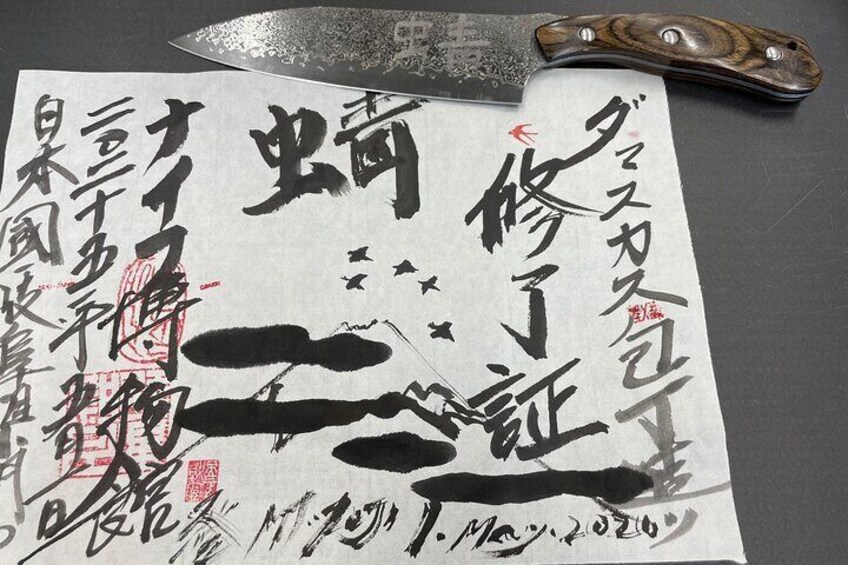 蜻
ダマスカス包丁造り
修了証
蜻
ナイフ博物館
二〇二十五年五月一日
日本國岐阜
1. May.